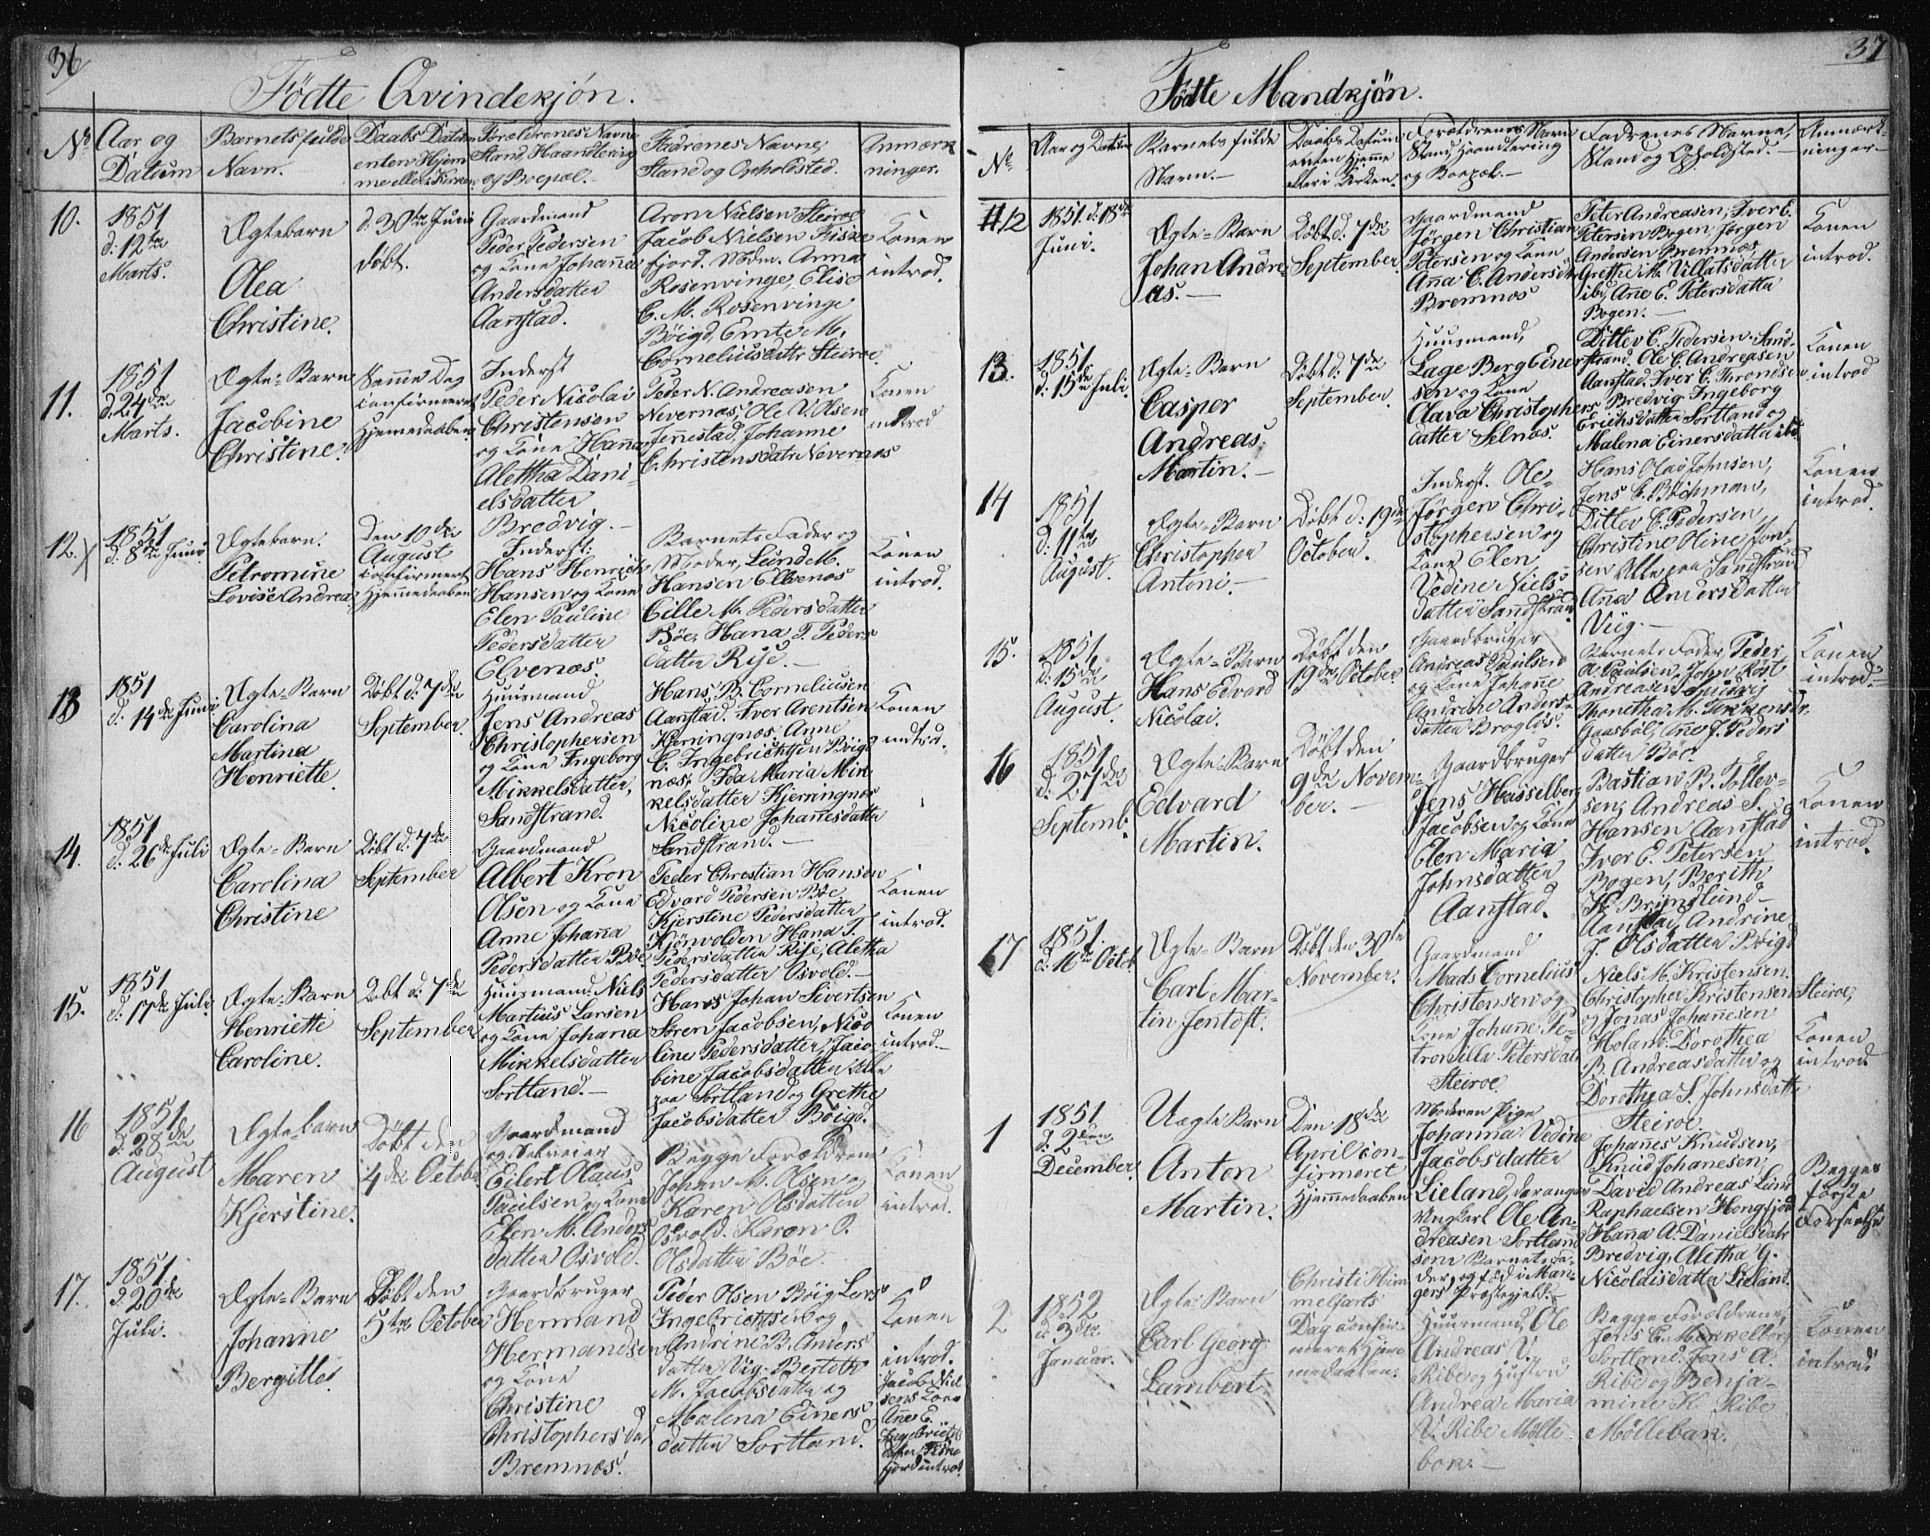 36
Födte Qvindekjön.
No
Aar og
Datum
Barnets fulde
Navn.
Daabs Datum
enten Hjem-
me eller i Kirken
Forældrenes Navne
Stand Haandtering
og Boepæl.
Fadrenes Navne,
Stand og Opholdsted.
Anmærk
ninger.
10.
1851
d. 12te
Marts.
Ægtebarn
Olea
Christine.
d. 30te Juni
døbt.
Gaardmand
Peder Pedersen
og Kone Johanna
Andersdatter
Aanstad.
Aron Nielsen Steiroe
Jacob Nielsen Fiske
fjord. Mdm. Anna
Rosenvinge, Elise
C. M. Rosenvinge
Böigd, Emte M.
Corneliusdatr Steiroe.
Konen
introd.
11.
1851
d. 24de
Marts.
Ægte-Barn
Jacobine
Christine.
Samme Dag
confirmeret
Hjemmedaaben
Inderst
Peder Nicolai
Christensen
og Kone Hanna
Alettha Dani-
elsdatter
Bredvig.
Peder N. Andreasen
Nevernæs, Ole V. Olsen
Jennestad, Johanne
Christensdatr Nevernæs
Konen
introd
12.
1851
d. 8de Juni
Ægtebarn.
Petromine
Lovise Andrea
Den 10de
August
confirmert
Hjemmedaaben
Inderst:
Hans Henrich
Hansen og Kone
Elen Pauline
Pedersdatter
Elvenæs.
Barnets Fader og
Moder, Lund M.
Hansen Elvenæs
Cille M. Pedersdatter
Böe, Hana T. Peders
datter Risе.
Konen
introd.
13
1851
d. 14de Juni
Ægte-Barn
Carolina
Martina
Henriette.
Döbt d. 7de
September.
Huusmand
Jens Andreas
Christophersen
og Kone Ingeborg
Mikkelsdatter,
Sandstrand.
Hans B. Corneliusen
Aanstad. Iver Arentsen
Kjerringnæs, Anne
C. Ingebrichtsen Böig
næs, Ida Maria Mik
kelsdatter Kjerringnæs
Nicoline Johannesdatter
Sandstrand.
Konen
introd.
14.
1851
d. 26de Juli
Ægte-Barn
Carolina
Christine
Döbt d. 7de
September
Gaardmand
Albert Kron
Olsen og Kone
Anne Johanna
Pedersdatter Böe
Peder Chrestian Hansen
Edvard Pedersen Böe,
Kjerstine Pedersdatter
Kjörvolden Hana T.
Pedersdatter Rise, Aletha
Pedersdatter Osvold.
Konen
introd.
15.
1851
d. 17de Juli
Ægte-Barn
Henriette
Caroline.
Döbt d. 7de
September
Huusmand Niels
Martius Larsen
og Kone Johana
Mikkelsdatter
Sortland.
Hans Johan Sivertsen
Sören Jacobsen, Nico
line Pedersdatter, Jaco-
bine Jacobsdatter Alle
paa Sortland og Grethe
Jacobsdatter Böigd.
Konen
introd.
16
1851
d. 28de
August
Ægtebarn
Maren
Kjerstine.
Döbt den
4de October
Gaardmand
og Selveier
Eilert Olaus
Paulsen og Kone
Elen M. Anders
datter Osvold.
Begge Forældrene
Johan M. Olsen og
Karen Olsdatter
Osvold. Karen O.
Olsdatter Böe.
Konen
introd.
17.
1851
d. 20de
Juli.
Ægte-Barn
Johanne
Bergitte.
Döbt den
5te October
Gaardbruger
Hermand
Hermandsen
og Kone
Christine
Christophersdat
Bremnæs.
Peder Olsen Böig Lars
Ingebrichtsen og
Andrine B. Anders
datter Vig. Berteth
M. Jacobsdatter og
Malena Einers
datter Sortland.
Konen
introd.
Jacob Niel
sens Kone
Ane E.
Ingebrichts
datter Fiske
fjord introd.
37
Födte Mandkjön.
No
Aar og Datum
Barnets fulde
Navn.
Daabs Datum
enten Hjemme
eller i Kirken.
Forældrenes Navn
Stand, Haandtering
og Boepæl.
Fadrenes Navne,
Stand og Opholdsted.
Anmærk-
ninger
12
1851 d. 18de
Juni.
Ægte-Barn
Johan Andre
as.
Döbt d. 7de
September.
Gaardmand
Jörgen Christian
Petersen og Kone
Anna C. Andersdtr
Bremnæs
Peter Andreasen, Iver E.
Petersen Bogen, Jörgen
Andersen Bremnæs
Grethe M. Villatsdatter
ibid, Ane E. Petersdatter
Bogen.
Konen
introd.
13.
1851
d. 15de Juli.
Ægte-Barn
Casper
Andreas
Martin.
Döbt d. 7de
September.
Huusmand,
Lage Berg Einer
sen og Kone
Olava Christophers
datter Selnæs.
Ditlev C. Pedersen Sand-
strand. Ole C. Andreasen
Aanstad. Iver C. Thronsen
Bredvig Ingeborg
Erichsdatter Sortland og
Malena Einersdatter ibd.
Konen
introd
14
1851
d. 11te
August.
Ægte-Barn
Christopher
Antoni
Döbt d. 19de
October.
Inderst. Ole
Jörgen Chri-
stophersen og
Kone Elen
Vedine Niels
datter Sandstrand
Hans Olai Johnsen,
Jens C. Bichman,
Ditlev C. Pedersen,
Christine Oline Jen-
sen Alle paa Sandstrand
Anna Andersdatter
Viig.
Konen
introd.
15.
1851
d. 15de
August.
Ægte-Barn
Hans Edvard
Nicolai.
Döbt den
19de October
Gaardbruger
Andreas Paulsen
og Kone Johane
Andrine Anders-
datter Broglös.
Barnets Fader Peder
A. Paulsen, John Röst
Andreasen Spidvig
Gaasböl, Ane J. Peders
datter Böe.
Konen
introd.
16
1851
d. 27de
Septemb.
Ægte-Barn
Edvard
Martin.
Döbt den
9de Novem-
ber.
Gaardbruger
Jens Hasselberg
Jacobsen og Kone
Elen Maria
Johnsdatter
Aanstad.
Bastian B. Tollev-
sen, Andreas S.
Hansen Aanstad
Iver E. Petersen
Bogen, Berith
H. Brinslund
Aanstad, Andrine
J. Olsdatter Böigd
Konen
introd.
17
1851
d. 16de Octob.
Ægte-Barn
Carl Mar-
tin Jentoft.
Döbt den 30te
November.
Gaardmand
Mads Cornelius
Christensen og
Kone Johanne Pe-
tronelle Petersdatr
Steiroe
Niels M. Kristensen
Christopher Kristensen Steiroe,
og Jonas Johannesen
Holand. Dorothea
B. Andreasdatter og
Dorothea S. Johnsdattr
Steiroe.
Konen
introd
1
1851
d. 2den
December
Uægte Barn
Anton
Martin.
Den 18de
April con-
firmeret
Hjemmedaaben
Moderen Pige
Johanna Vedine
Jacobsdatter
Lieland, daranger
Ungkarl Ole An-
dreasen Sortland
som Barnets Fa-
der, og föd i Man-
gers Præstegjeld.
Johannes Knudsen,
Knud Johanesen,
David Andreas Lund
Raphaelsen Hongfjord
Hanna A. Danielsdatr
Bredvig, Aletha G.
Nicolaisdatter Lieland.
Begges
förste
Forseelse
2
1852
d. 3die
Januar.
Ægte-Barn
Carl Georg
Lambert.
Christi Him
melfarts
Dag confir-
meret Hjem
medaaben.
Huusmand, Ole
Andreas V.
Ribe og Hustru
Andrea Maria
V. Ribe Mölle-
bak.
Begge Forældrene,
Jens C. Mækelborg
Sortland. Jens A.
Ribe og Benja-
mine K. Ribe
Möllebak.
Konen
introd.